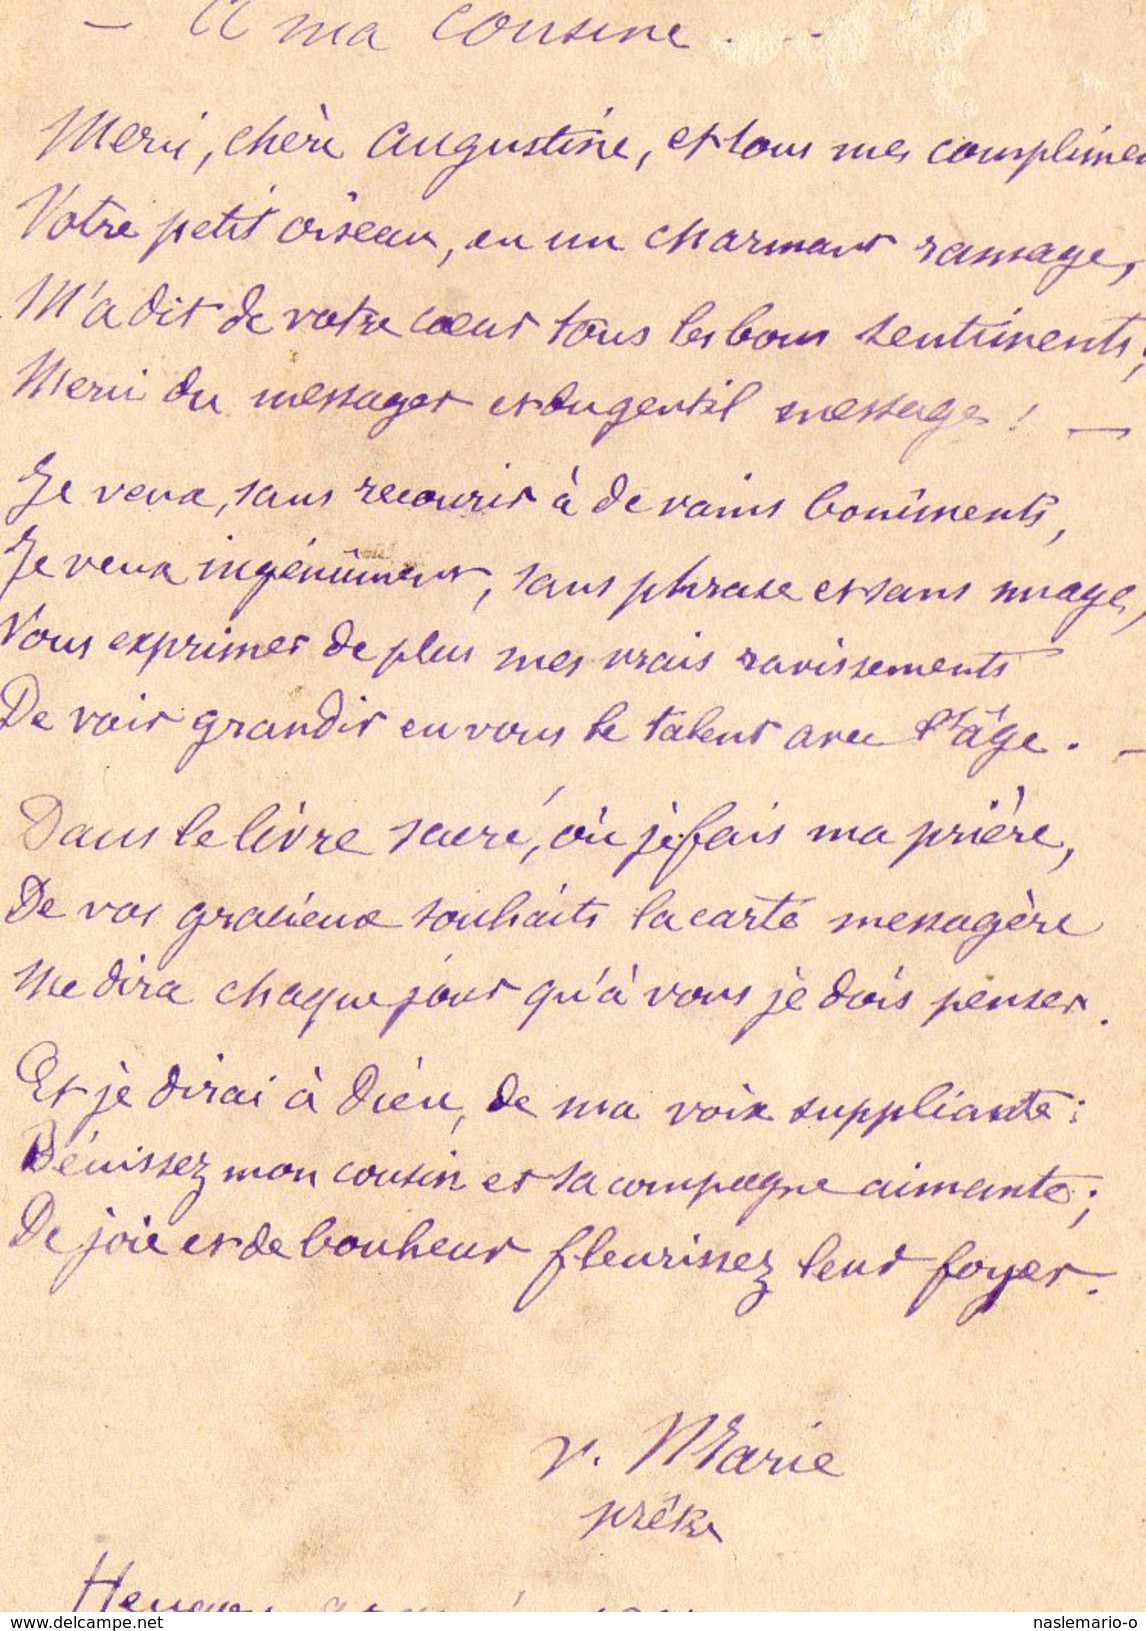 - A ma cousine . . .
Merci, chère Augustine, et tous mes complimen
Votre petit oiseau, en un charmant ramage,
M'a dit de votre cœur tous les bons sentiments;
Merci du messager et du gentil message ! —
Je veux, sans recourir à de vains boniments,
Je veux ingénûment, sans phrase et sans nuage,
Vous exprimer de plus mes vrais ravissements
De voir grandir en vous le talent avec l'âge. —
Dans le livre sacré, où je fais ma prière,
De vos gracieux souhaits la carte messagère
Me dira chaque jour qu'à vous je dois penser.
Et je dirai à Dieu, de ma voix suppliante :
Bénissez mon cousin et sa compagne aimante ;
De joie et de bonheur fleurissez leur foyer.
V. Marie
prêtre
www.delcampe.net
naslemario-o